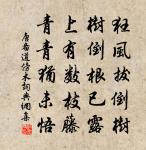 狂風拔倒樹
樹倒根已露
上有數枝藤
青青猶未悟
唐曹道傍木詞典網集